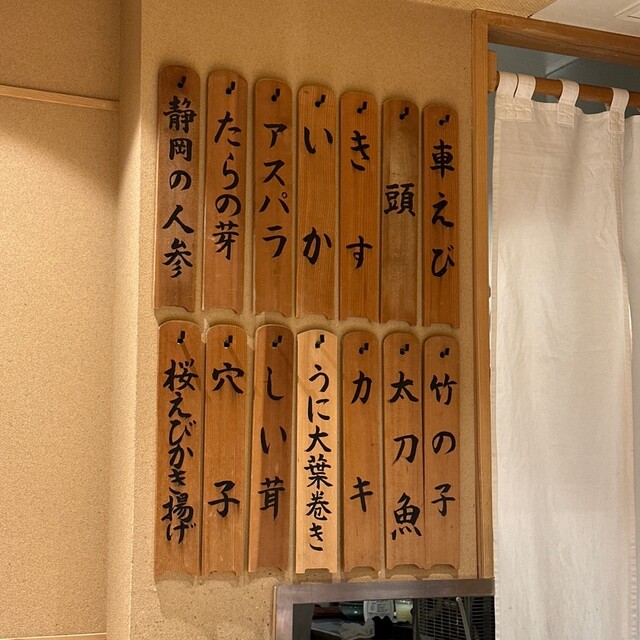 車えび
頭
きす
いか
アスパラ
たらの芽
静岡の人参
竹の子
太刀魚
カキ
うに大葉巻き
しい茸
穴子
桜えびかき揚げ